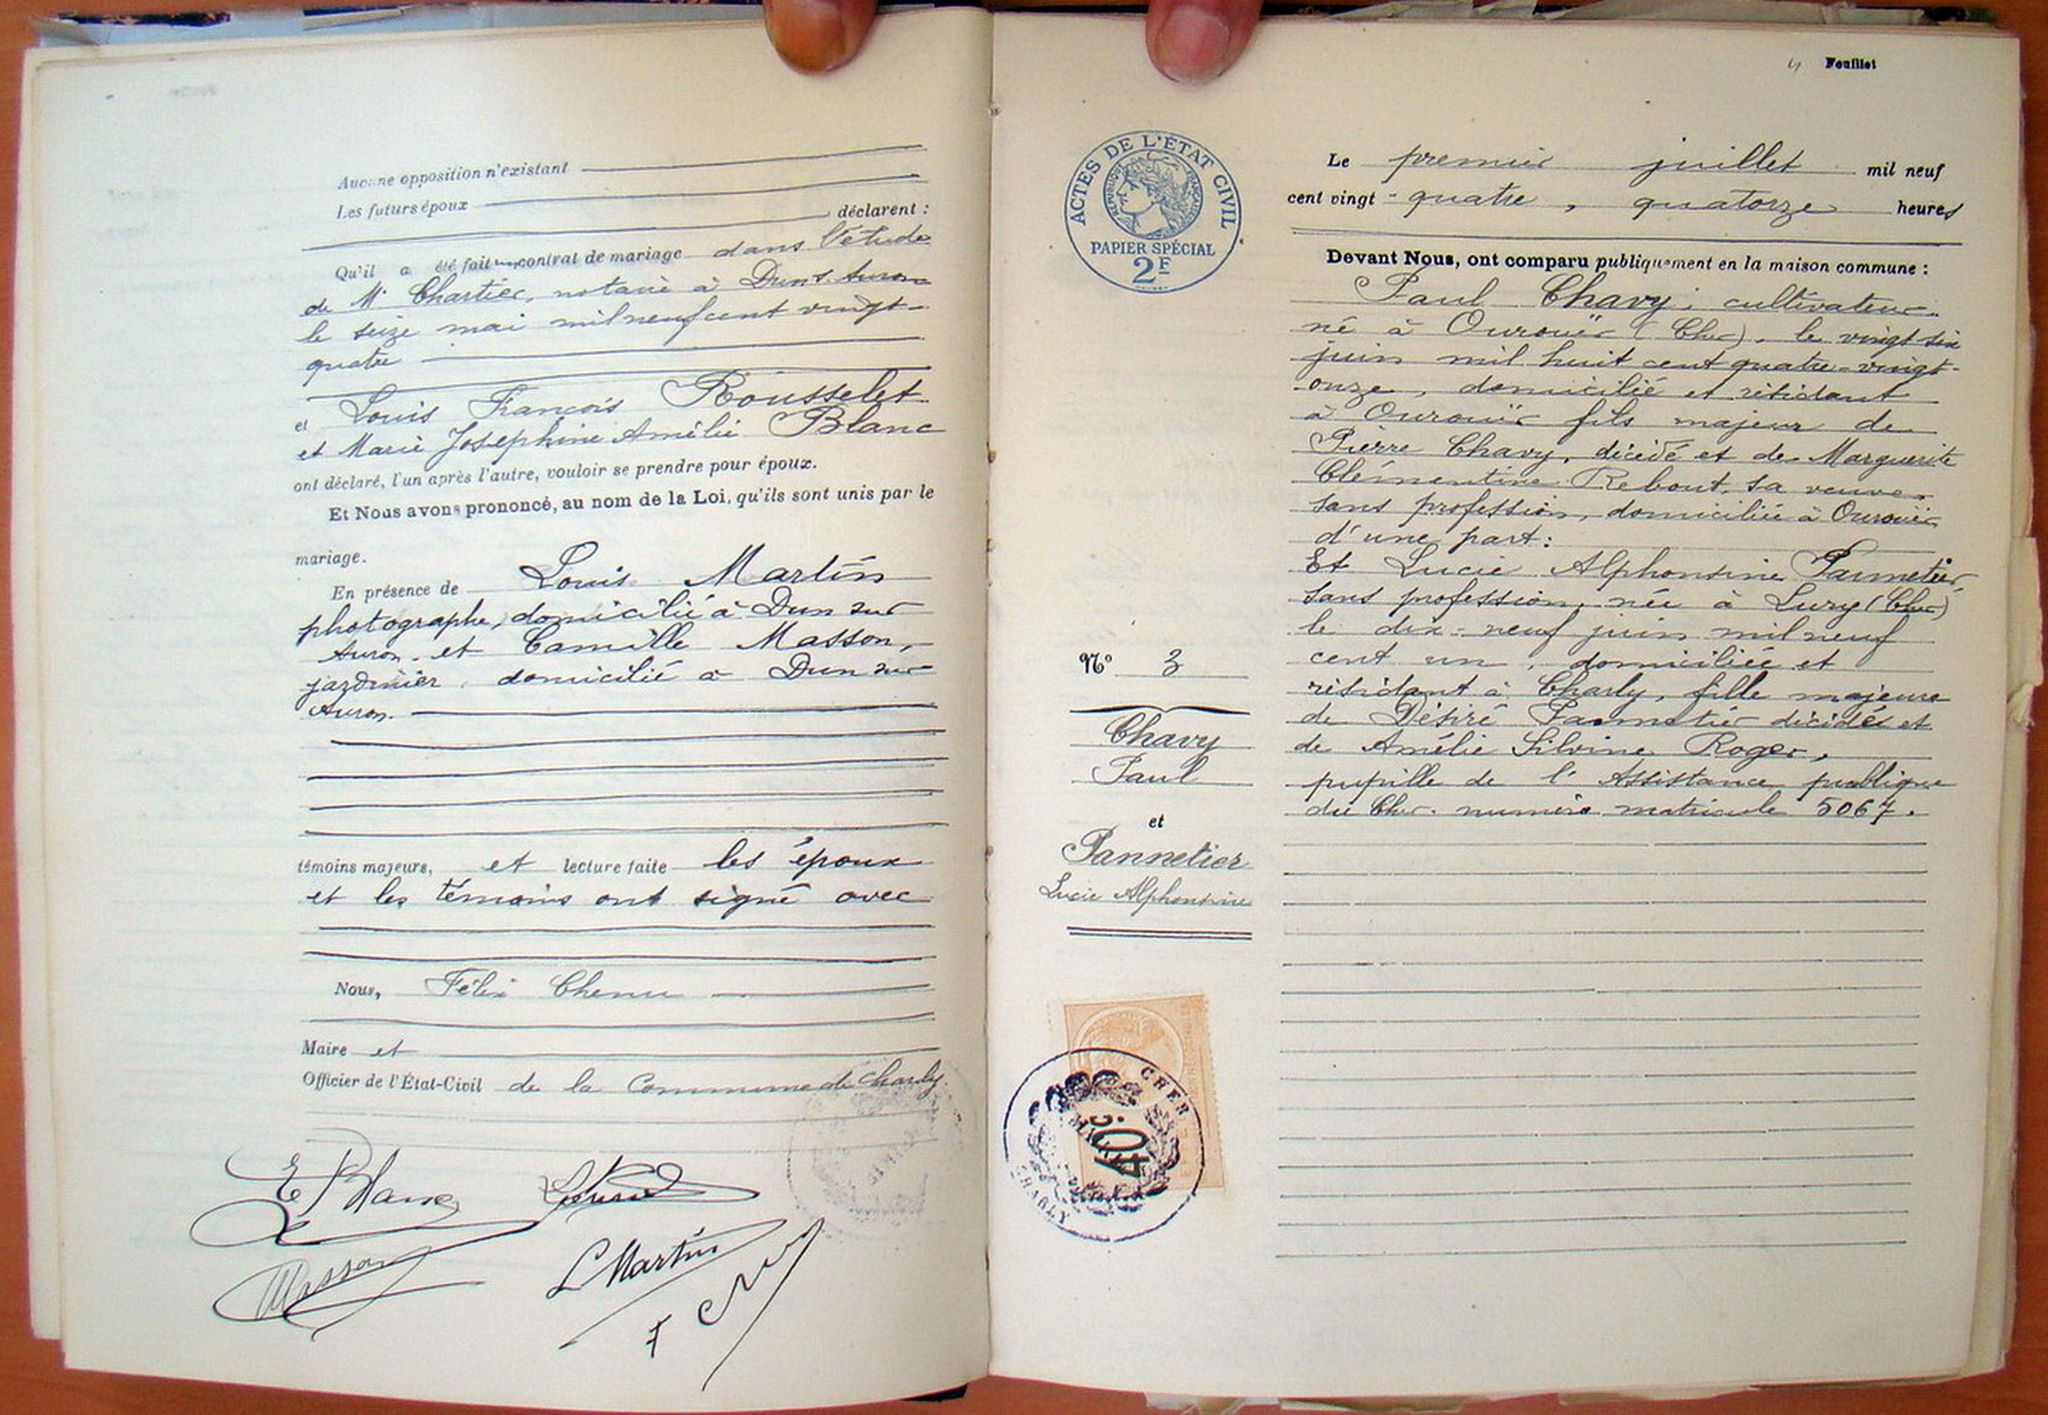 Aucune opposition n'existant
Les futurs époux
déclarent :
Qu'il a été fait un contrat de mariage dans l'étude
de Me Chartier, notaire à Dun s Auron
le seize mai mil neuf cent vingt-
quatre
et Louis François Rousselet
et Marie Josephine Amélie Blanc
ont déclaré, l'un après l'autre, vouloir se prendre pour époux.
Et Nous avons prononcé, au nom de la Loi, qu'ils sont unis par le
mariage.
En présence de Louis Martin
photographe, domicilié à Dun sur
Auron et Camille Masson,
jardinier, domicilié à Dun sur
Auron.
témoins majeurs, et lecture faite les époux
et les témoins ont signé avec
Nous, Félix Chenu
Maire et
Officier de l'État-Civil de la Commune de Charly
E Blanc
Masson
L Martin
Feuillet
ACTES DE L'ÉTAT CIVIL
RÉPUBLIQUE FRANÇAISE
PAPIER SPÉCIAL
2F
Le premier juillet mil neuf
cent vingt-quatre, quatorze heures
Devant Nous, ont comparu publiquement en la maison commune :
Paul Chavy, cultivateur
né à Ourouër (Cher), le vingt six
juin mil huit cent quatre-vingt-
onze, domicilié et résidant
à Ourouër fils majeur de
Pierre Chavy, décédé et de Marguerite
Clémentine Rebout, sa veuve,
sans profession, domiciliée à Ourouër
d'une part :
Et Lucie Alphonsine Pannetier
sans profession, née à Lury (Cher)
le dix-neuf juin mil neuf
cent un, domiciliée et
résidant à Charly, fille majeure
de Désiré Pannetier décédés et
de Amélie Silvine Roger,
pupille de l'Assistance publique
du Cher numéro matricule 5067.
No 3
Chavy
Paul
et
Pannetier
Lucie Alphonsine
CHER
MAIRIE
CHARLY
40c